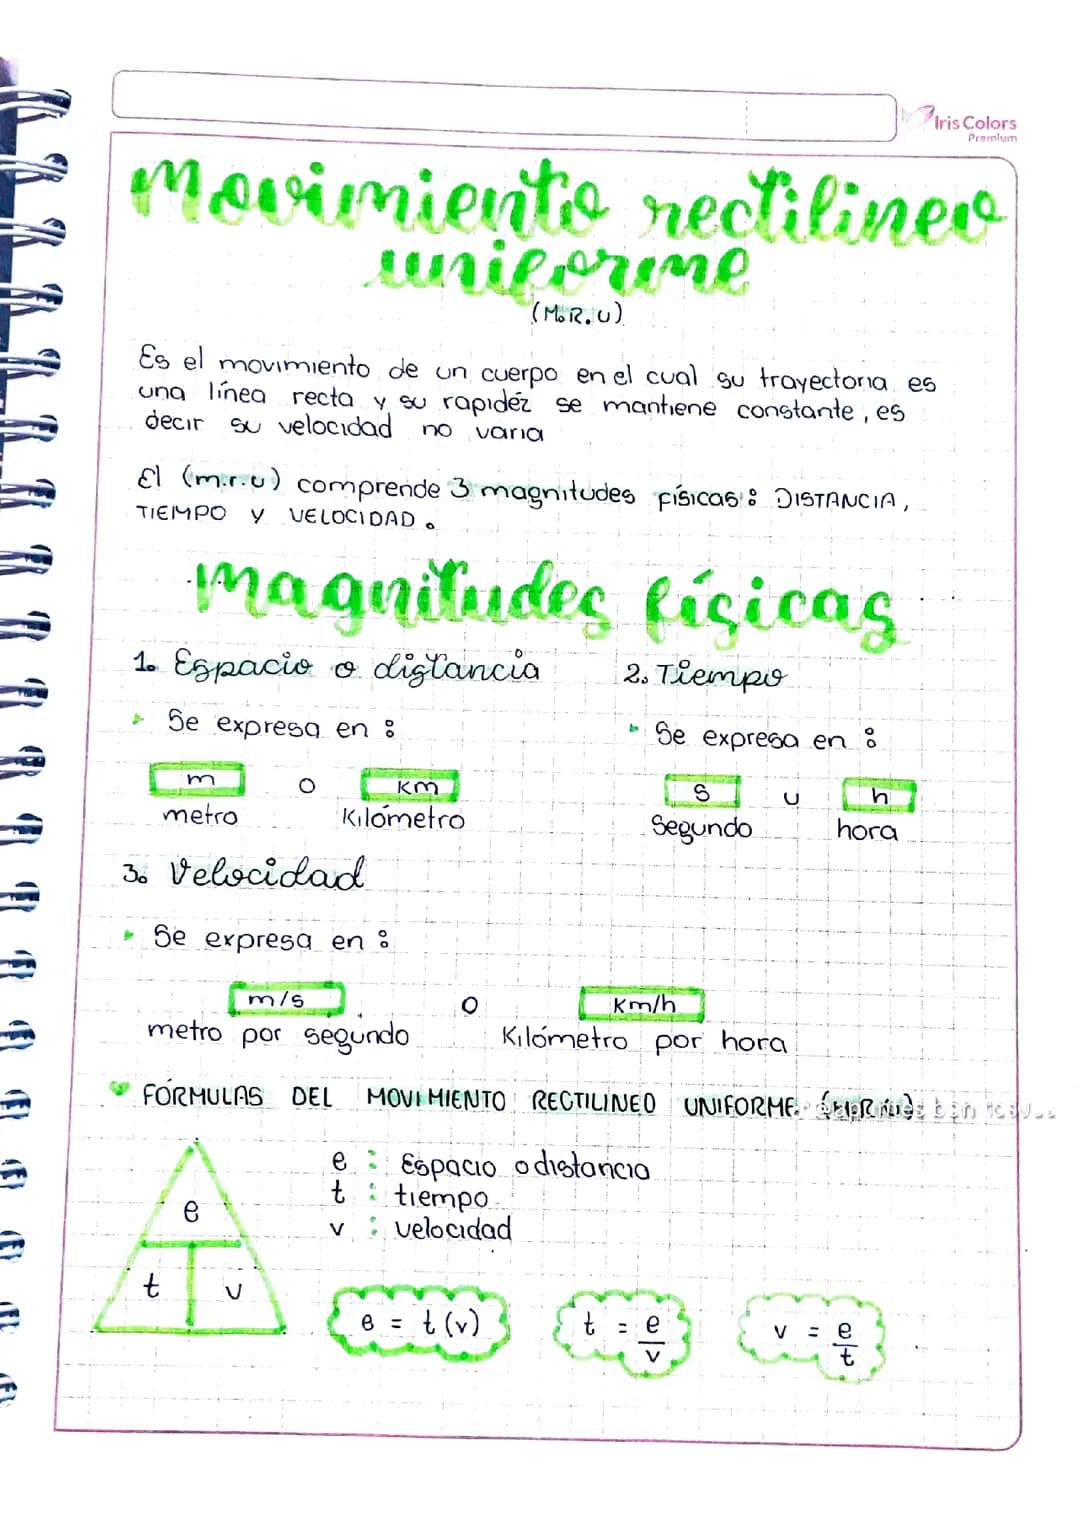 Iris Colors
Premium
Movimiento rectilineo
uniforme
(M.R.U)
Es el movimiento de un cuerpo en el cual su trayectoria es
una línea recta y su rapidéz se mantiene constante, es
decir su velocidad no varia
El (m.r.u) comprende 3 magnitudes físicas: DISTANCIA,
TIEMPO Y VELOCIDAD.
Magnitudes físicas
1. Espacio o distancia
2. Tiempo
Se expresa en:
Se expresa en:
m o km
s u h
metro Kilómetro
Segundo hora
3. Velocidad
Se expresa en:
m/s o Km/h
metro por segundo Kilómetro por hora
FORMULAS DEL MOVIMIENTO RECTILINEO UNIFORME.
e : Espacio o distancia
t : tiempo
v : velocidad
e
t v
e = t (v)
t = e/v
v = e/t